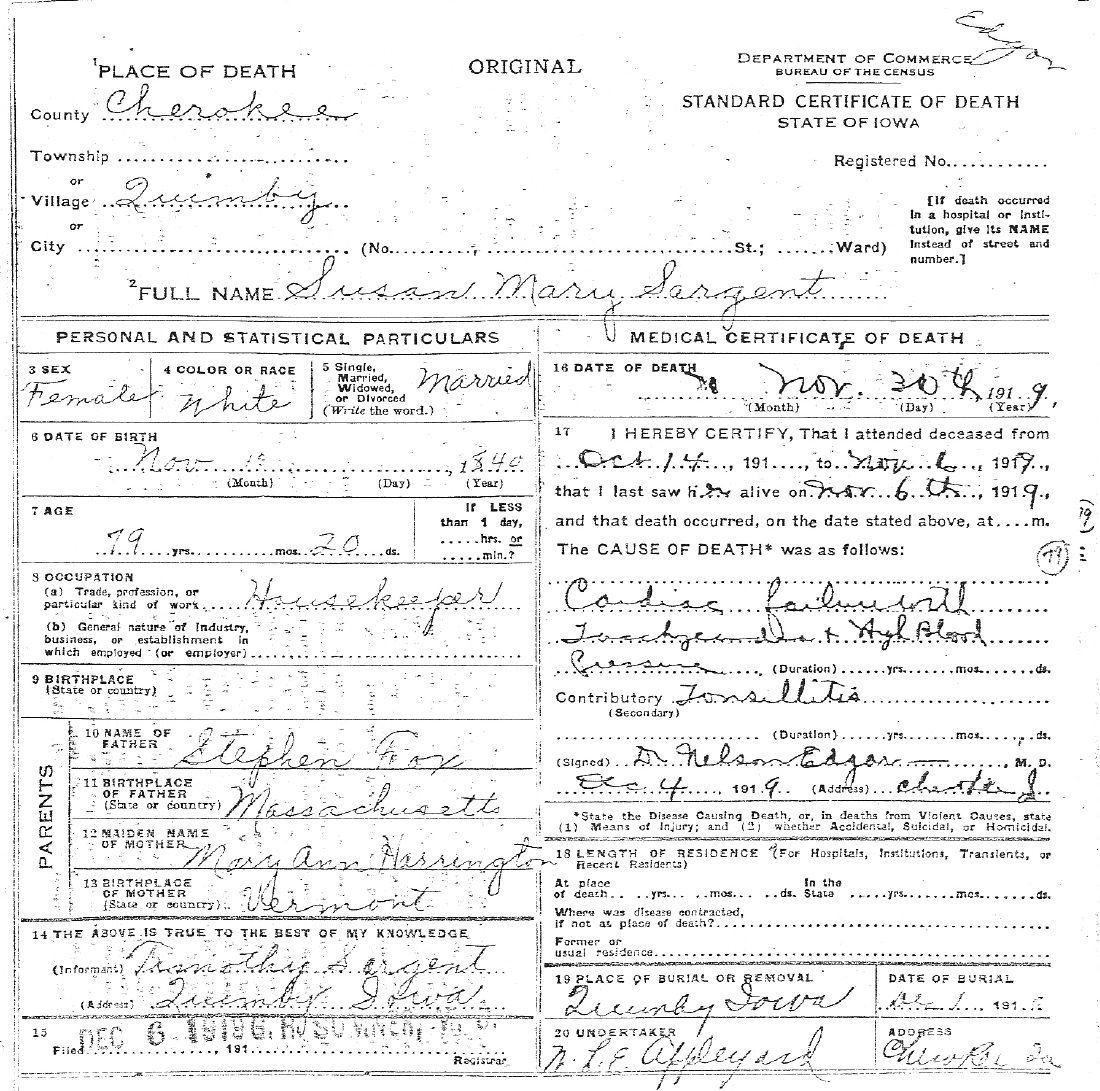 Edgar
1 PLACE OF DEATH
ORIGINAL
DEPARTMENT OF COMMERCE
BUREAU OF THE CENSUS
County Cherokee
STANDARD CERTIFICATE OF DEATH
STATE OF IOWA
Township
Registered No.
or
Village Quimby
or
City (No. St.; Ward)
[If death occurred
in a hospital or insti-
tution, give its NAME
instead of street and
number.]
2 FULL NAME Susan Mary Sargent
PERSONAL AND STATISTICAL PARTICULARS
3 SEX
Female
4 COLOR OR RACE
White
5 Single,
Married,
Widowed,
or Divorced
(Write the word.)
Married
6 DATE OF BIRTH
Nov 1840
(Month) (Day) (Year)
7 AGE
79 yrs. mos. 20 ds.
If LESS
than 1 day,
hrs. or
min.?
8 OCCUPATION
(a) Trade, profession, or
particular kind of work Housekeeper
(b) General nature of Industry,
business, or establishment in
which employed (or employer)
9 BIRTHPLACE
(State or country)
PARENTS
10 NAME OF
FATHER
Stephen Fox
11 BIRTHPLACE
OF FATHER
(State or country) Massachusetts
12 MAIDEN NAME
OF MOTHER
Mary Ann Harrington
13 BIRTHPLACE
OF MOTHER
(State or country) Vermont
14 THE ABOVE IS TRUE TO THE BEST OF MY KNOWLEDGE
(Informant) Timothy Sargent
(Address) Quimby Iowa
15
DEC 6 1919
Filed , 191
Registrar
MEDICAL CERTIFICATE OF DEATH
16 DATE OF DEATH
Nov. 30th 1919,
(Month) (Day) (Year)
17 I HEREBY CERTIFY, That I attended deceased from
Oct 14, 191 , to Nov 6, 1919,
that I last saw her alive on Nov 6th, 1919,
and that death occurred, on the date stated above, at m.
The CAUSE OF DEATH* was as follows:
79
Cardiac failure with
+ High Blood
Pressure (Duration) yrs. mos. ds.
Contributory Tonsillitis
(Secondary)
(Duration) yrs. mos. ds.
(Signed) Dr Nelson Edgar M. D.
Dec 4 1919 (Address) Cherokee I
*State the Disease Causing Death, or, in deaths from Violent Causes, state
(1) Means of Injury; and (2) whether Accidental, Suicidal, or Homicidal.
18 LENGTH OF RESIDENCE (For Hospitals, Institutions, Transients, or
Recent Residents)
At place In the
of death yrs. mos. ds. State yrs. mos. ds.
Where was disease contracted,
if not at place of death?
Former or
usual residence
19 PLACE OF BURIAL OR REMOVAL
Quimby Iowa
DATE OF BURIAL
Dec 1 1919
20 UNDERTAKER
N. L. E. Appleyard
ADDRESS
Cherokee Ia